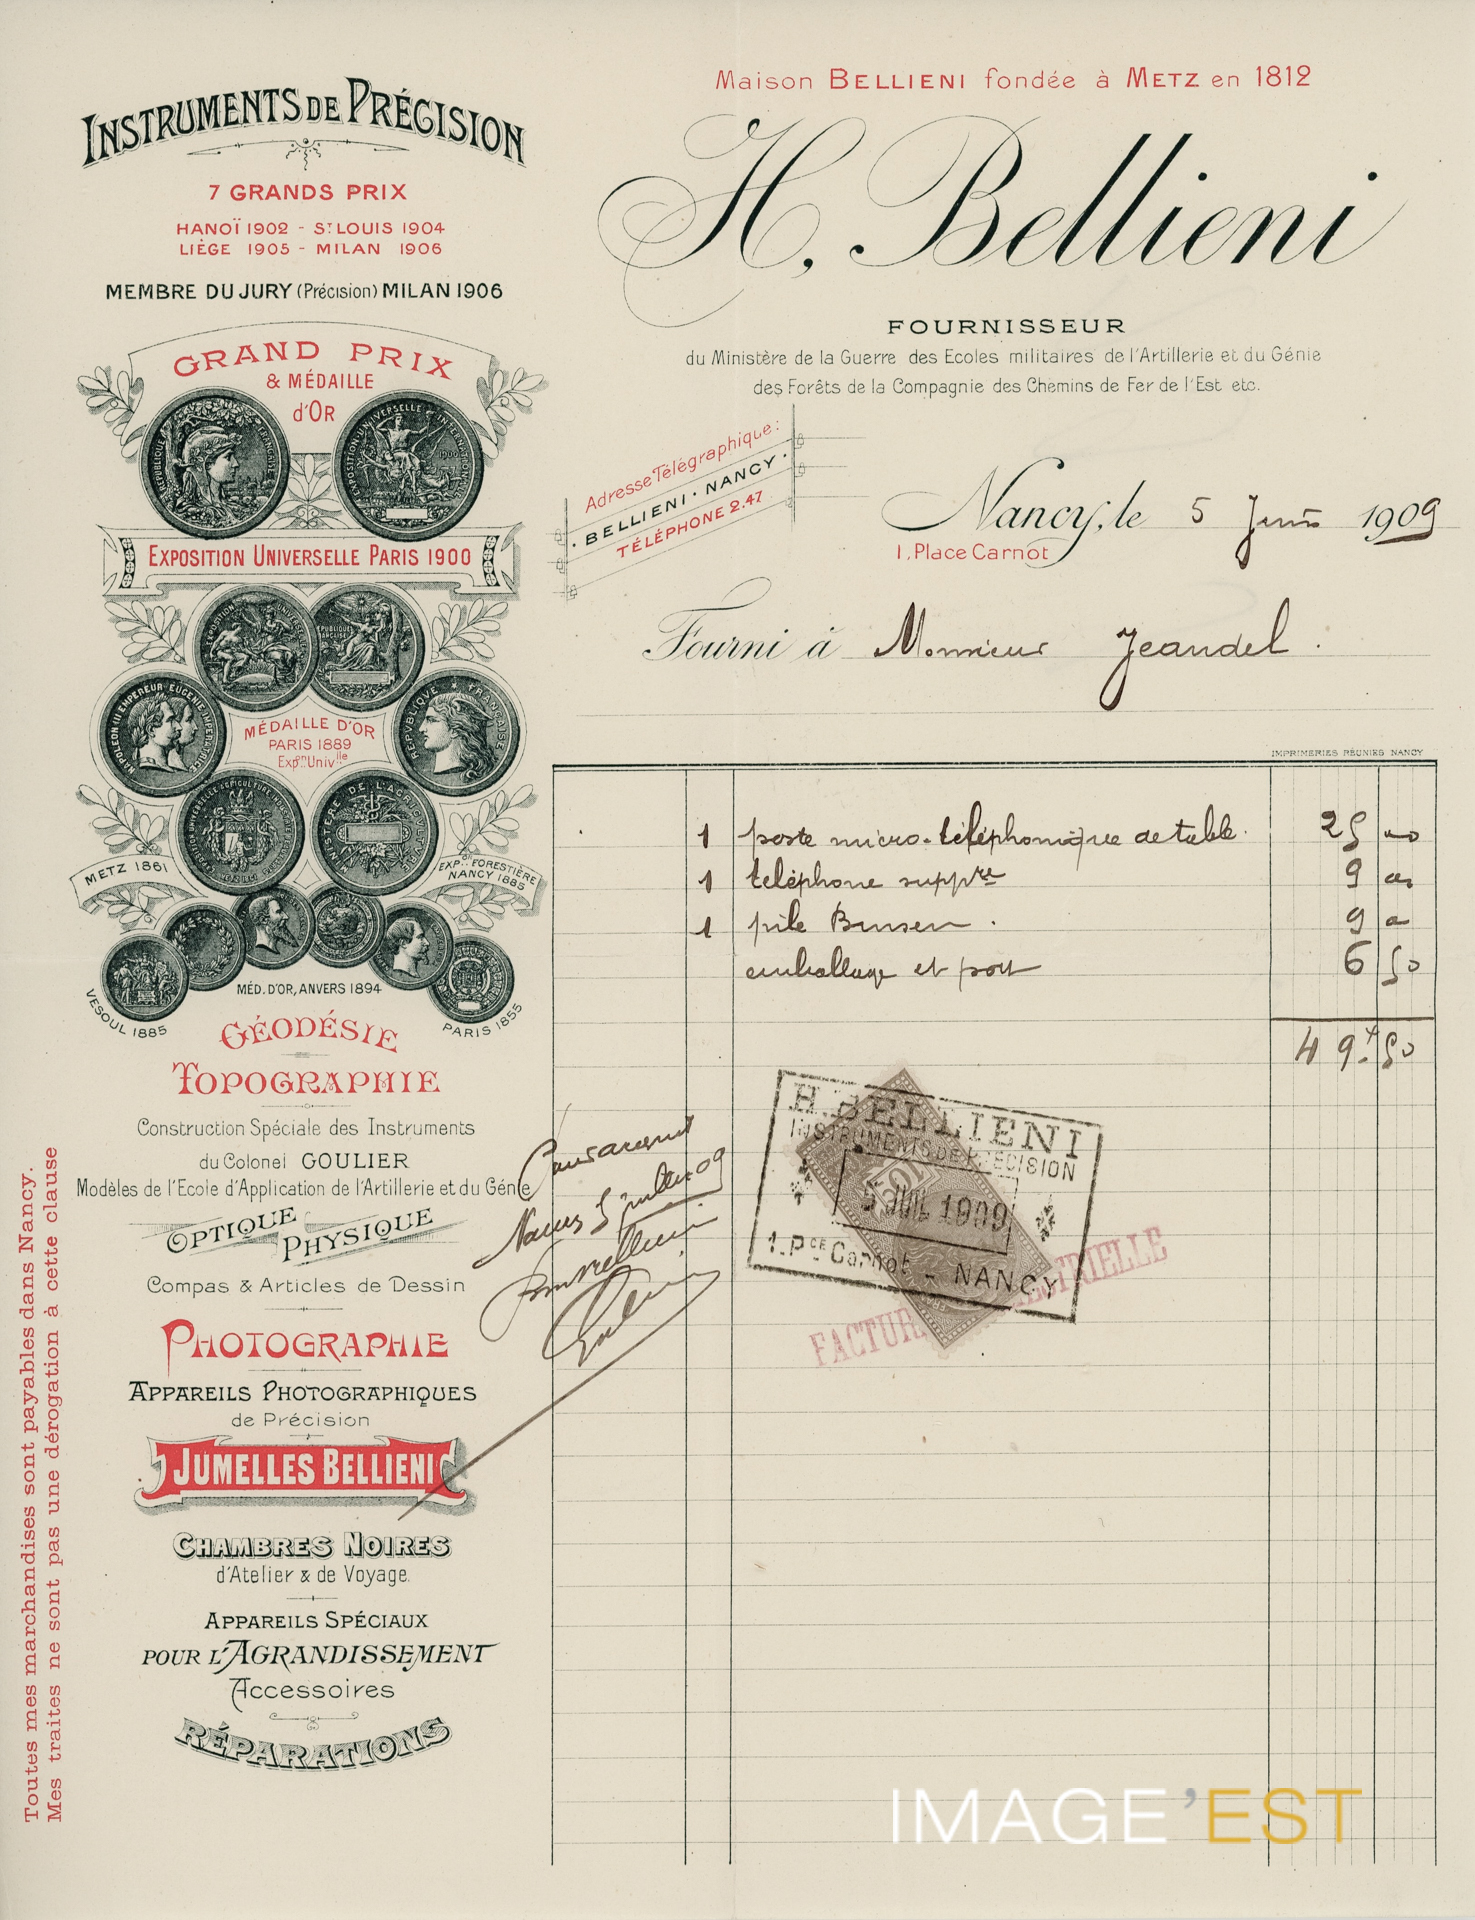 Maison BELLIENI fondée à METZ en 1812
H. Bellieni
FOURNISSEUR
du Ministère de la Guerre des Ecoles militaires de l'Artillerie et du Génie
des Forêts de la Compagnie des Chemins de Fer de l'Est etc.
Adresse Télégraphique:
BELLIENI · NANCY
TÉLÉPHONE 2.47
Nancy, le 5 Juin 1909
1, Place Carnot
Fourni à Monsieur Jeandel.
IMPRIMERIES RÉUNIES NANCY
1 poste micro-téléphonique de table. 25 00
1 téléphone suppre 9 00
1 pile Bunsen. 9 00
emballage et port 6 50
49 50
H. BELLIENI
INSTRUMENTS DE PRÉCISION
5 JUIL 1909
1. Pce Carnot - NANCY
FACTURE
INSTRUMENTS DE PRÉCISION
7 GRANDS PRIX
HANOÏ 1902 - ST LOUIS 1904
LIÈGE 1905 - MILAN 1906
MEMBRE DU JURY (Précision) MILAN 1906
GRAND PRIX
& MÉDAILLE
d'OR
REPUBLIQUE FRANÇAISE
EXPOSITION UNIVERSELLE INTERNATIONALE 1900
EXPOSITION UNIVERSELLE PARIS 1900
NAPOLEON III EMPEREUR EUGENIE IMPERATRICE
REPUBLIQUE FRANÇAISE
MÉDAILLE D'OR
PARIS 1889
Expon Univlle
MINISTERE DE L'AGRICULTURE
METZ 1861
EXPon FORESTIÈRE
NANCY 1885
VESOUL 1885
MÉD. D'OR, ANVERS 1894
PARIS 1855
GÉODÉSIE
TOPOGRAPHIE
Construction Spéciale des Instruments
du Colonel GOULIER
Modèles de l'Ecole d'Application de l'Artillerie et du Génie
OPTIQUE
PHYSIQUE
Compas & Articles de Dessin
PHOTOGRAPHIE
APPAREILS PHOTOGRAPHIQUES
de Précision
JUMELLES BELLIENI
CHAMBRES NOIRES
d'Atelier & de Voyage.
APPAREILS SPÉCIAUX
POUR L'AGRANDISSEMENT
Accessoires
RÉPARATIONS
Toutes mes marchandises sont payables dans Nancy.
Mes traites ne sont pas une dérogation à cette clause
IMAGE'EST